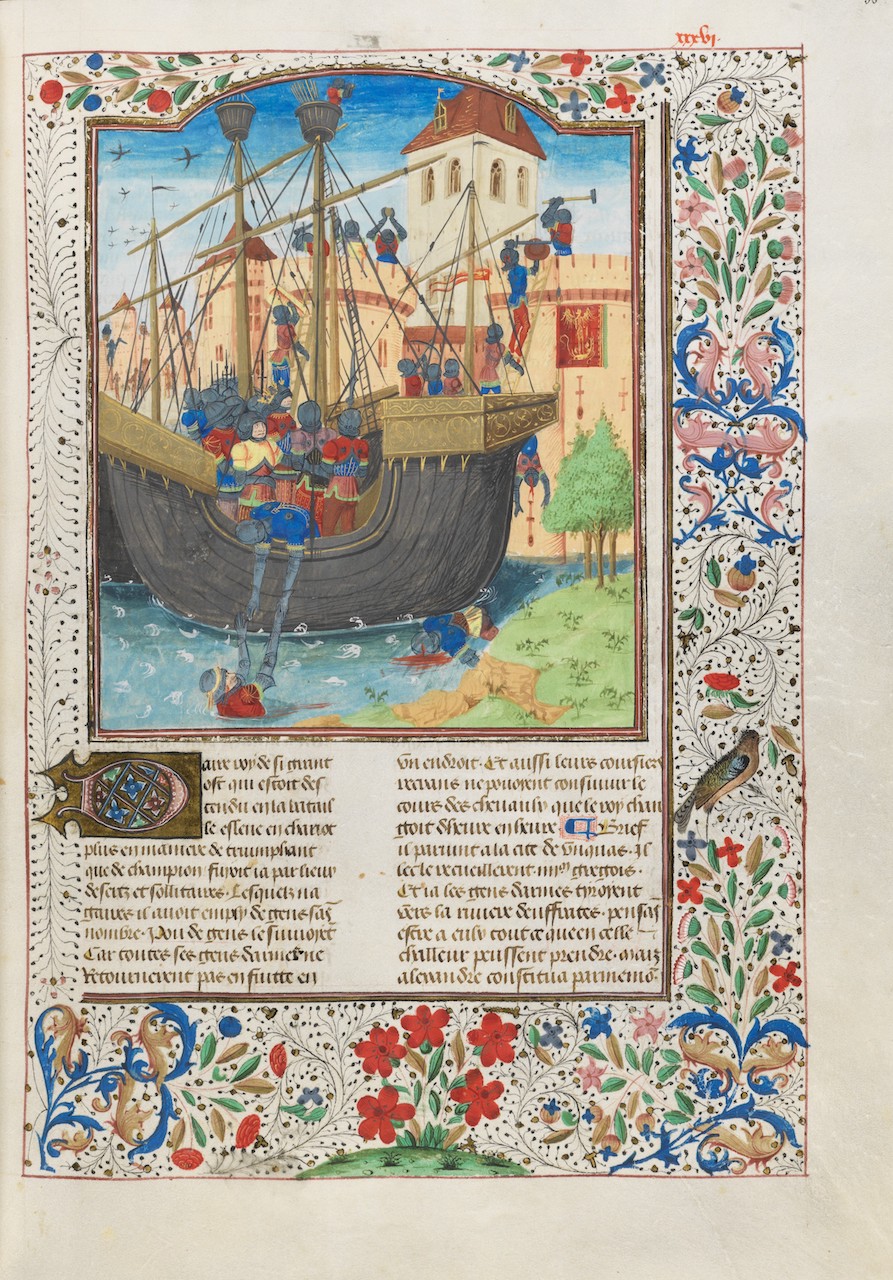 xxxvi.
aire roy de si grant
ost qui estoit des
cendu en la batail
le esleue en chariot
plus en maniere de triumphant
que de champion fuyoit ia par lieux
desertz et sollitaires. Lesquelz na
gaires il auoit emply de gens sãs
nombre. Pou de gens le suiuoiẽt
Car toutes ses gens darmes ne
retournerent pas en fuitte en
vn endroit. Et aussi leurs coursiers
recrans ne pouoient consuiuir le
cours des cheuaulx que le roy chan
goit dheure en heure Brief
il paruint a la cite de vnquas. Il
lec le recueillerent .iiijm. gregois.
Et ia les gens darmes tyroient
vers la riuiere deuffrates. pensãs
estre a eulx tout ce que en celle
challeur peussent prendre. mais
alexandre constitua parmeniõ